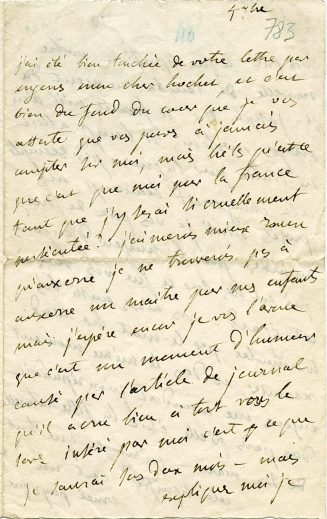 4 7bre
783
j'ai été bien touchée de votre lettre par
eugene mon cher hochet, et c'est
bien du fond du cœur que je vous
atteste que vous pouvez à jamais
compter sur moi, mais hélas qu'est ce
que c'est que moi pour la france
tant que j'y serai si cruellement
persécutée? j'aimerois mieux rouen
qu'auxerre je ne trouverois pas à
auxerre un maitre pour mes enfants
mais j'espère encor je vous l'avoue
que c'est un moment d'humeur
causé par l'article de journal
qu'il a cru bien à tort
inséré par moi c'est ce que
je saurai dans deux mois – mais
expliquez moi je